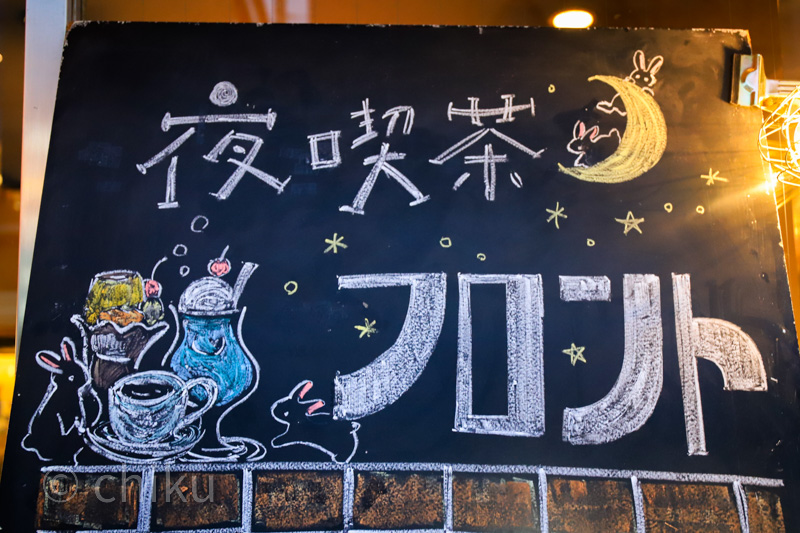 夜喫茶
フロント
© chiku